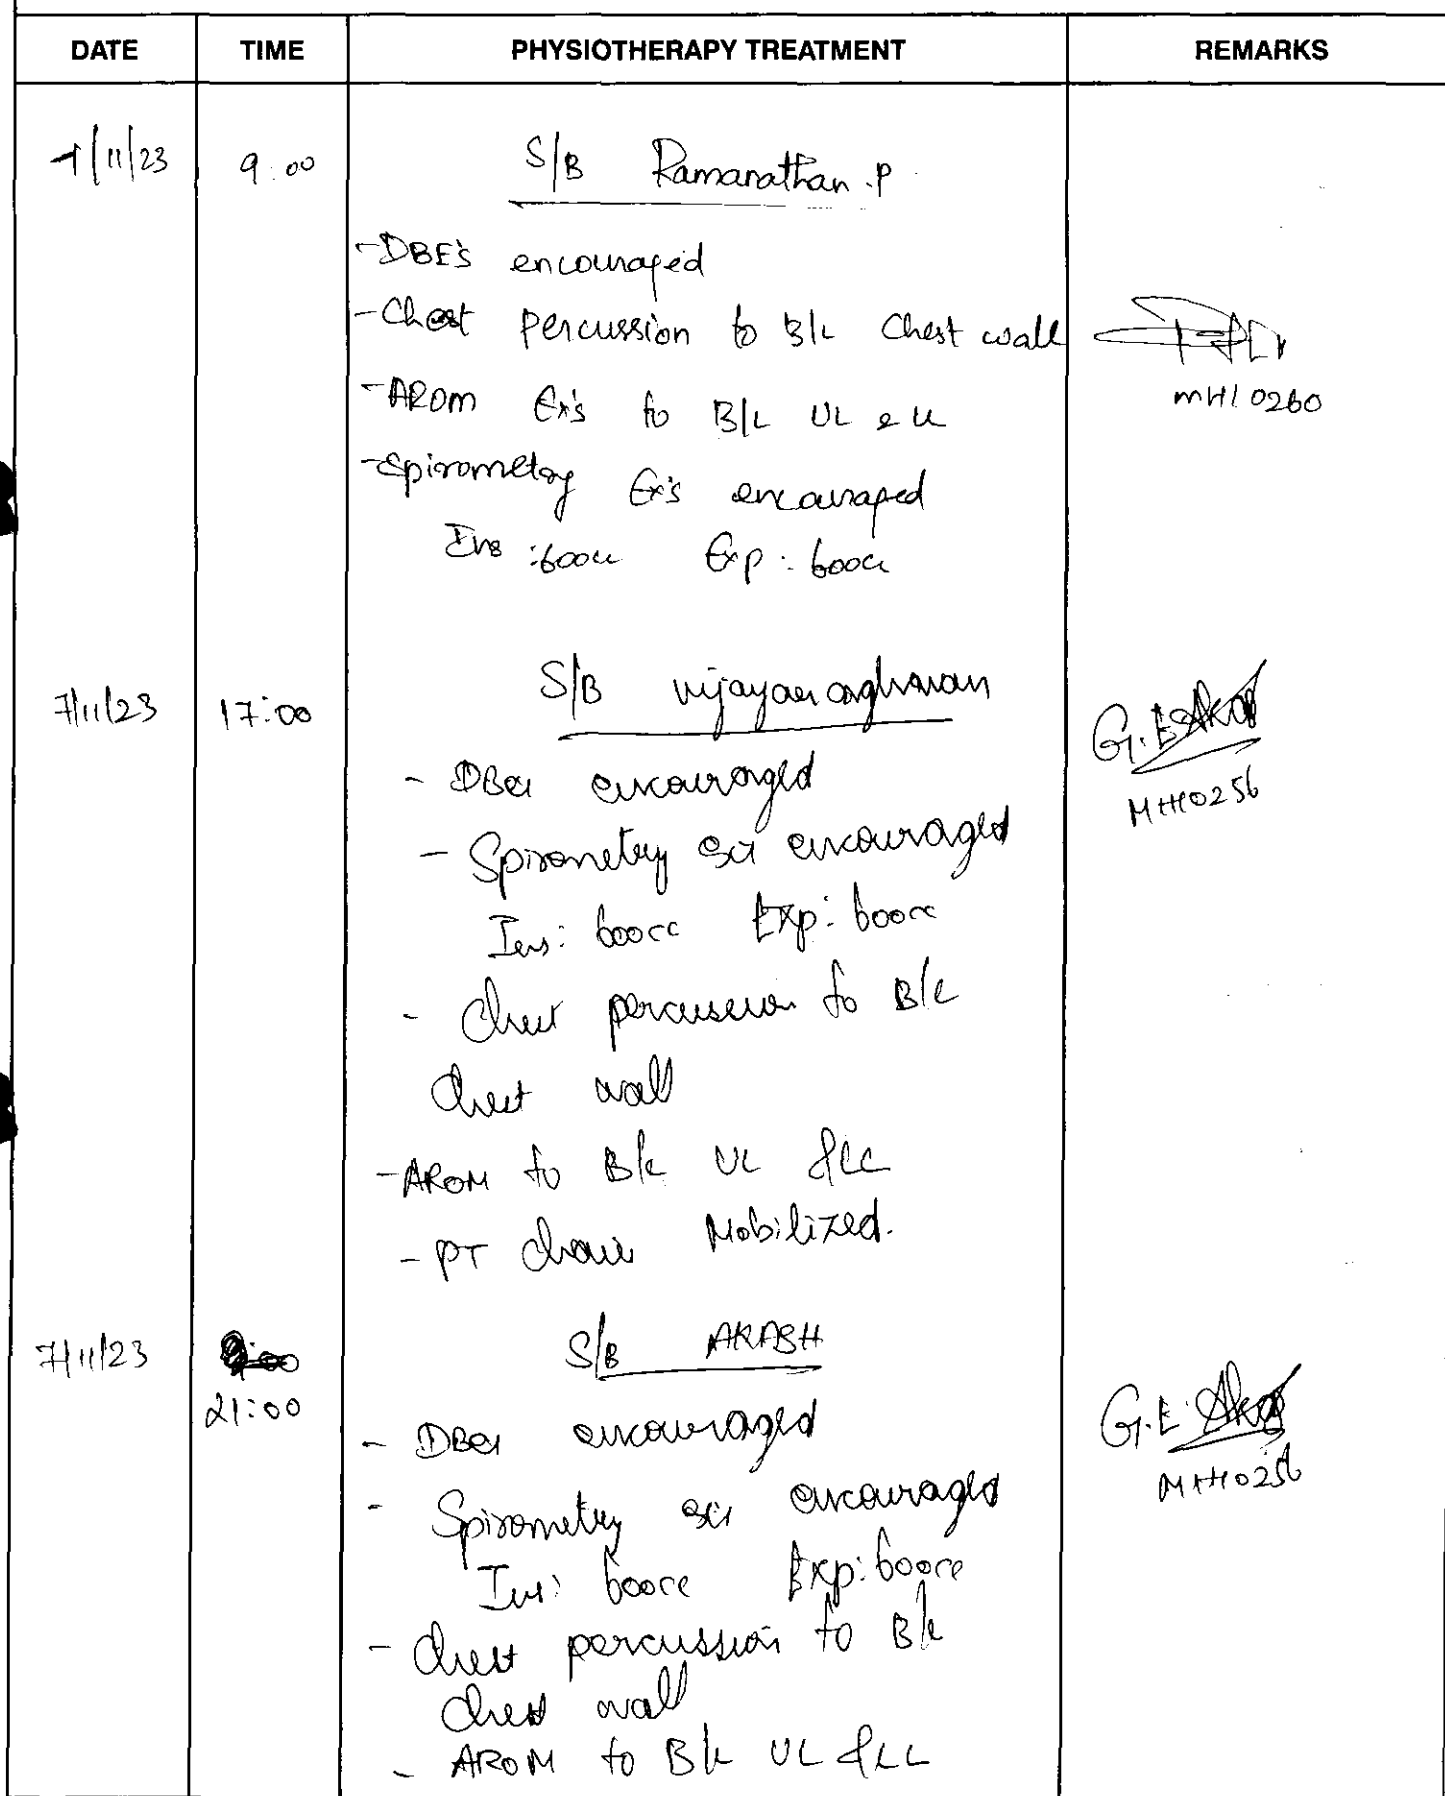 DATE TIME PHYSIOTHERAPY TREATMENT REMARKS
7/11/23 9:00 S/B Ramanathan.P
-DBE's encouraged
-Chest Percussion to B/L Chest wall
-AROM Ex's to B/L UL & LL
MH10260
-Spirometry Ex's encouraged
Ins:600cc Exp:600cc
7/11/23 17:00 S/B Vijayaraghavan
G.E
- DBEs encouraged
MHH0256
- Spirometry Ex encouraged
Ins: 600cc Exp: 600cc
- Chest percussion to B/L
Chest wall
-AROM to B/L UL & LL
- PT chair Mobilized.
7/11/23 S/B AKASH
21:00
G.E.
- DBEs encouraged
MHH0256
- Spirometry Ex encouraged
Ins: 600cc Exp: 600cc
- Chest percussion to B/L
Chest wall
- AROM to B/L UL & LL